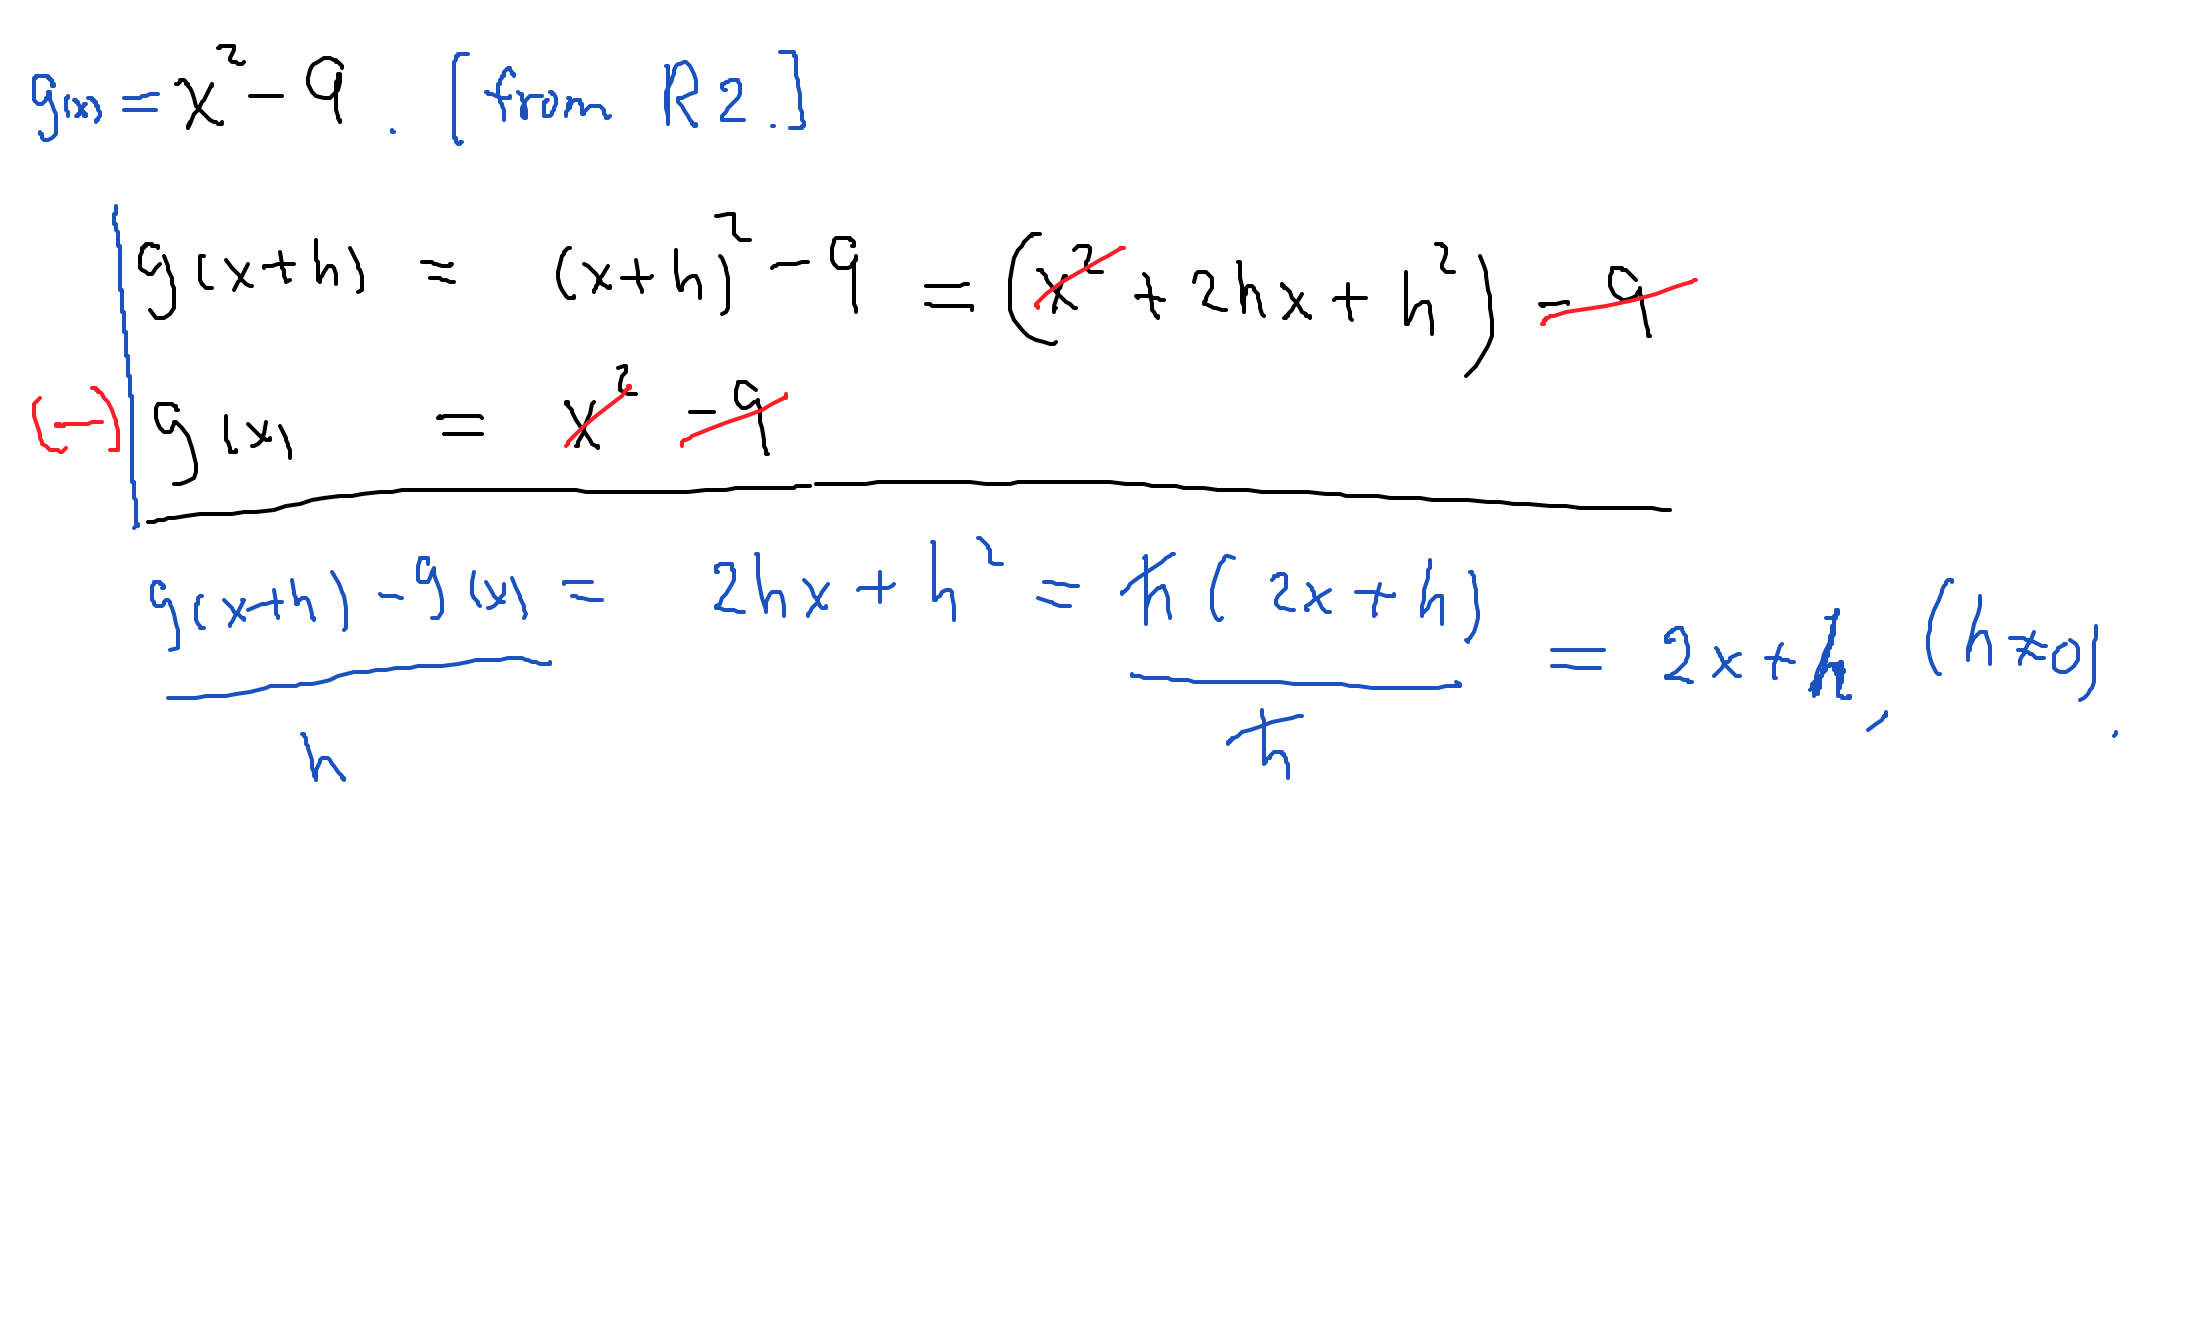 g(x) = x² - 9 . [from R2.]
g(x+h) = (x+h)² - 9 = (x² + 2hx + h²) - 9
(-) g(x) = x² - 9
g(x+h) - g(x) = 2hx + h² = h(2x+h) = 2x+h, (h≠0).
h h